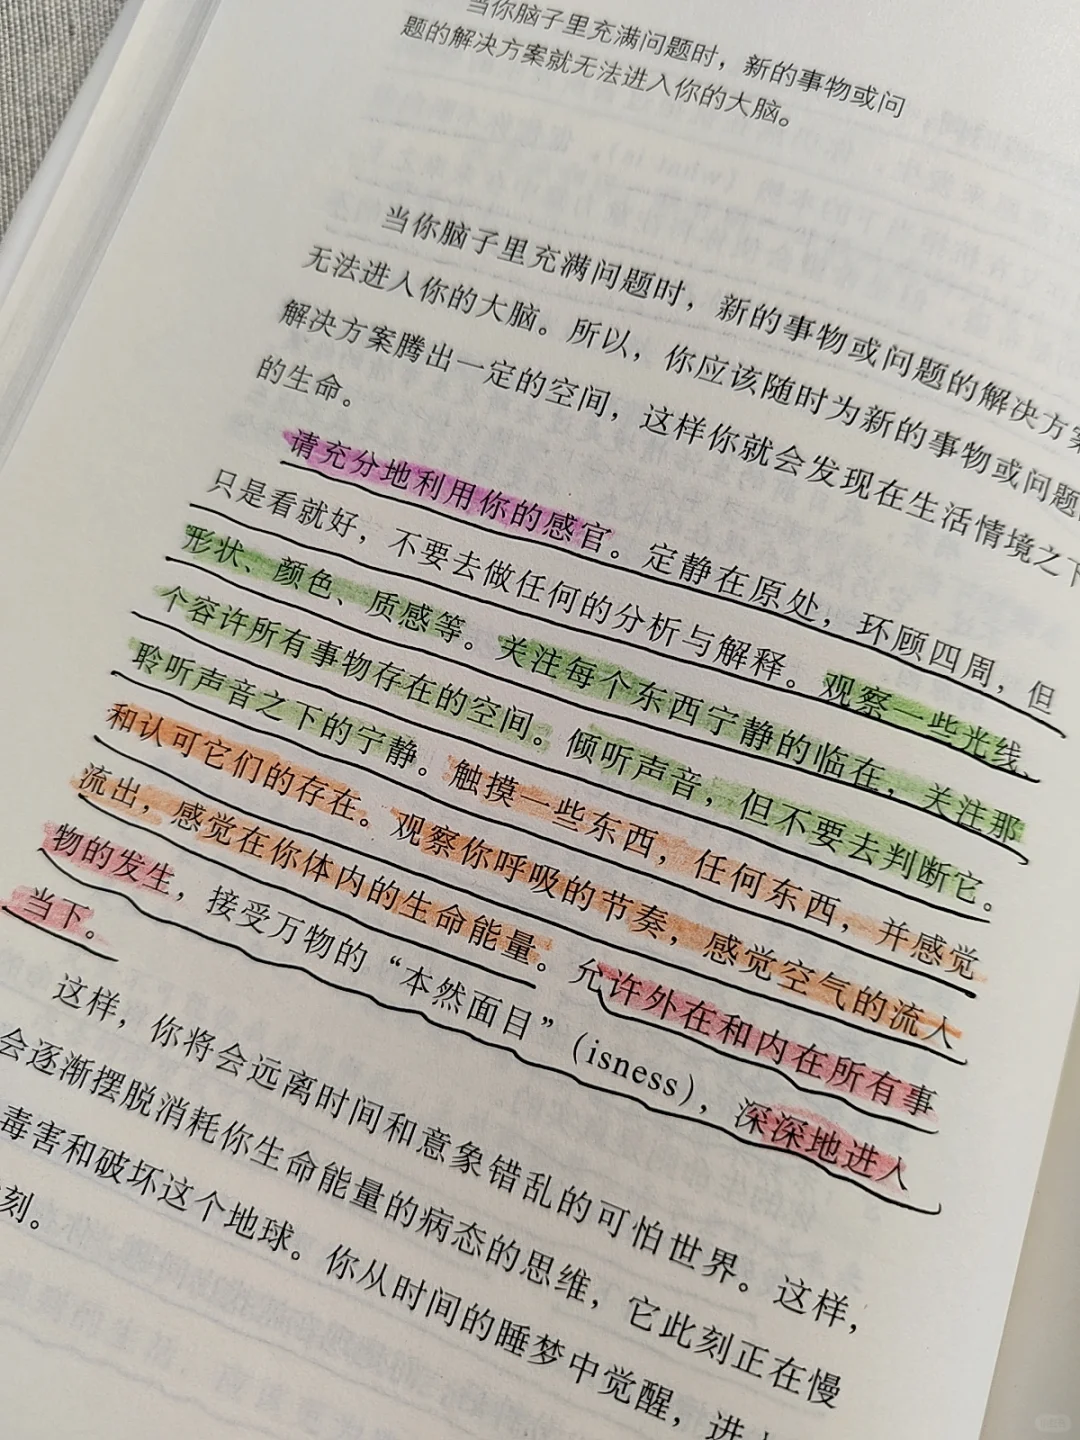 当你脑子里充满问题时，新的事物或问
题的解决方案就无法进入你的大脑。
当你脑子里充满问题时，新的事物或问题的解决方案
无法进入你的大脑。所以，你应该随时为新的事物或问题
解决方案腾出一定的空间，这样你就会发现在生活情境之下
的生命。
请充分地利用你的感官。定静在原处，环顾四周，但
只是看就好，不要去做任何的分析与解释。观察一些光线、
形状、颜色、质感等。关注每个东西宁静的临在，关注那
个容许所有事物存在的空间。倾听声音，但不要去判断它。
聆听声音之下的宁静。触摸一些东西，任何东西，并感觉
和认可它们的存在。观察你呼吸的节奏，感觉空气的流入
流出，感觉在你体内的生命能量。允许外在和内在所有事
物的发生，接受万物的“本然面目”（isness），深深地进入
当下。
这样，你将会远离时间和意象错乱的可怕世界。这样，
会逐渐摆脱消耗你生命能量的病态的思维，它此刻正在慢
毒害和破坏这个地球。你从时间的睡梦中觉醒，进
刻。